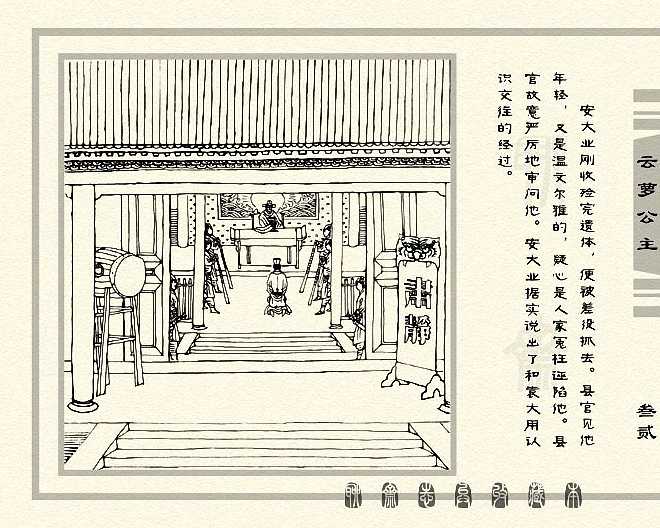 安大业刚收殓完遗体，便被差役抓去。县官见他
年轻，又是温文尔雅的，疑心是人家冤枉诬陷他。县
官故意严厉地审问他。安大业据实说出了和袁大用认
识交往的经过。
云萝公主
叁贰
肃静
聊斋志异收藏本